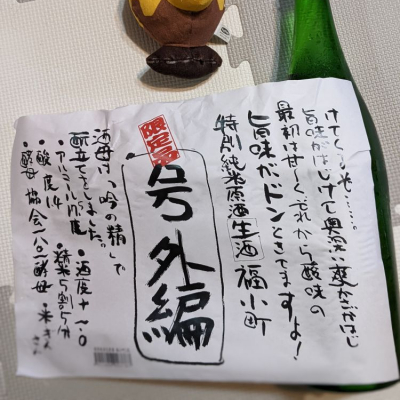 けてくるぞ……。
旨味がはじけて奥深い変化がはじ
最初は甘〜く、それから酸味の
旨味がドンときてますよ!
特別純米原酒 生酒 福小町
限定品
号外編
酒母は「吟の精」で
酛立てをしましたよ。
・アルコール17度 ・酒度+1.0
・酸度1.4 ・精米5割5分
・酵母 協会1801酵母 ・米ぎんさん